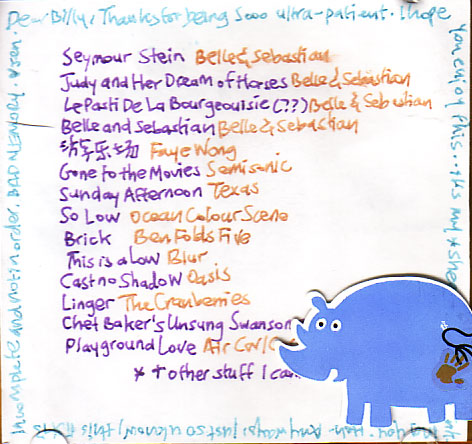 Dear Billy, Thanks for being sooo ultra-patient. I hope
you enjoy this.
Seymour Stein Belle & Sebastian
Judy and Her Dream of Horses Belle & Sebastian
Le Pasti De La Bourgeouisie (??) Belle & Sebastian
Belle and Sebastian Belle & Sebastian
Faye Wong
Gone to the Movies Semisonic
Sunday Afternoon Texas
So Low Ocean Colour Scene
Brick Ben Folds Five
This is a Low Blur
Cast no Shadow Oasis
Linger The Cranberries
Chet Baker's Unsung Swanson
Playground Love Air
* + other stuff I can
and not in order. BAD MEMORY.